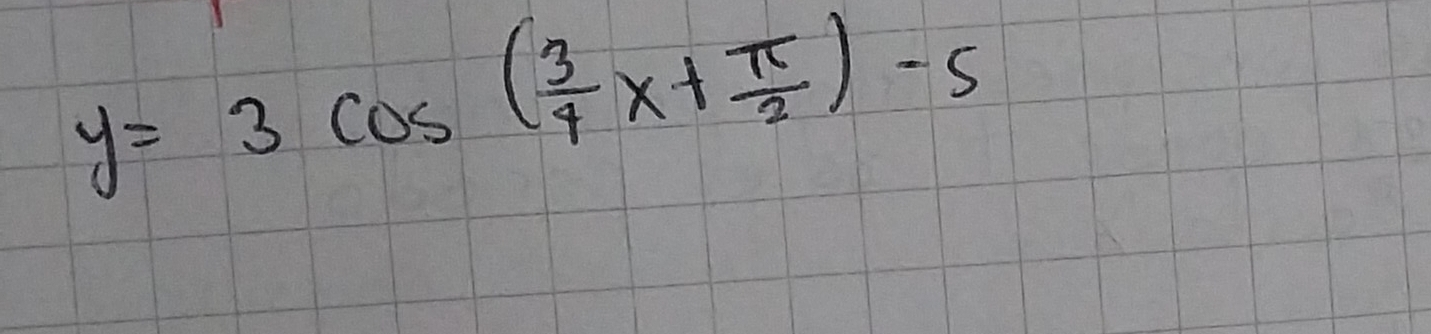 y= 3 cos (3/4 x + π/2) - 5